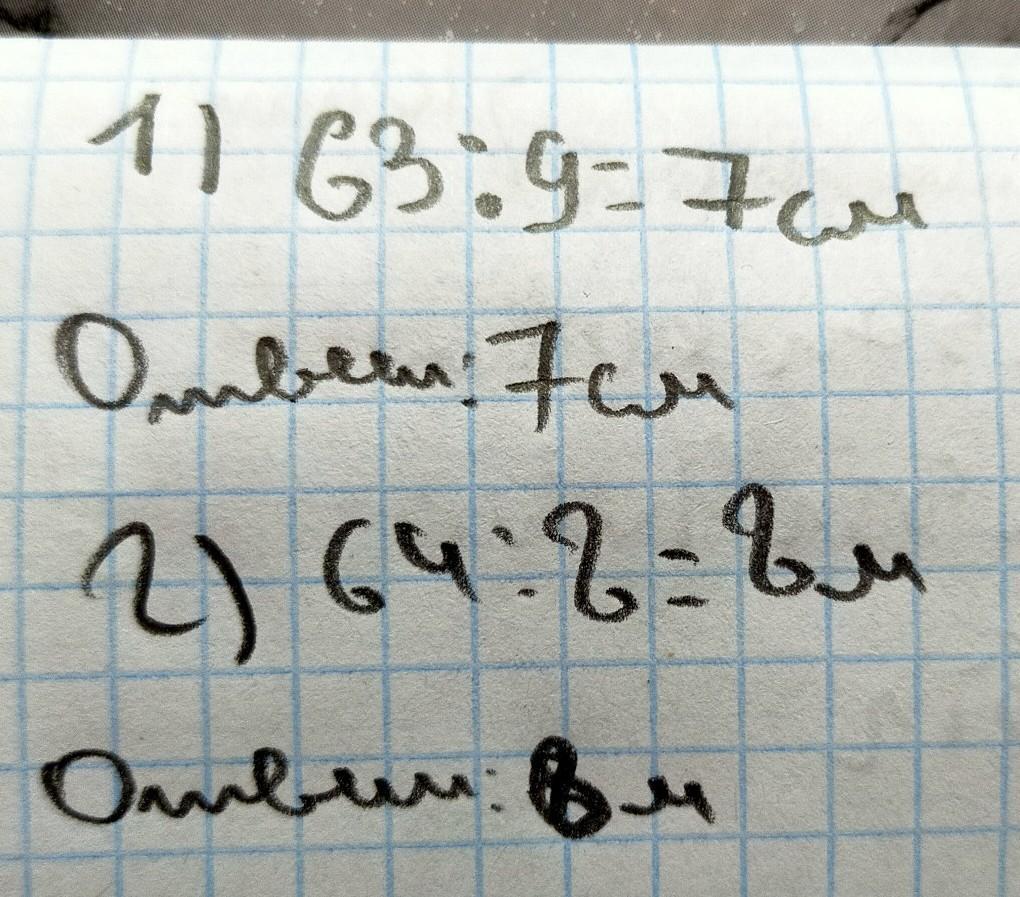 1) 63:9=7см
Ответ: 7см
2) 64:8=8м
Ответ: 8м